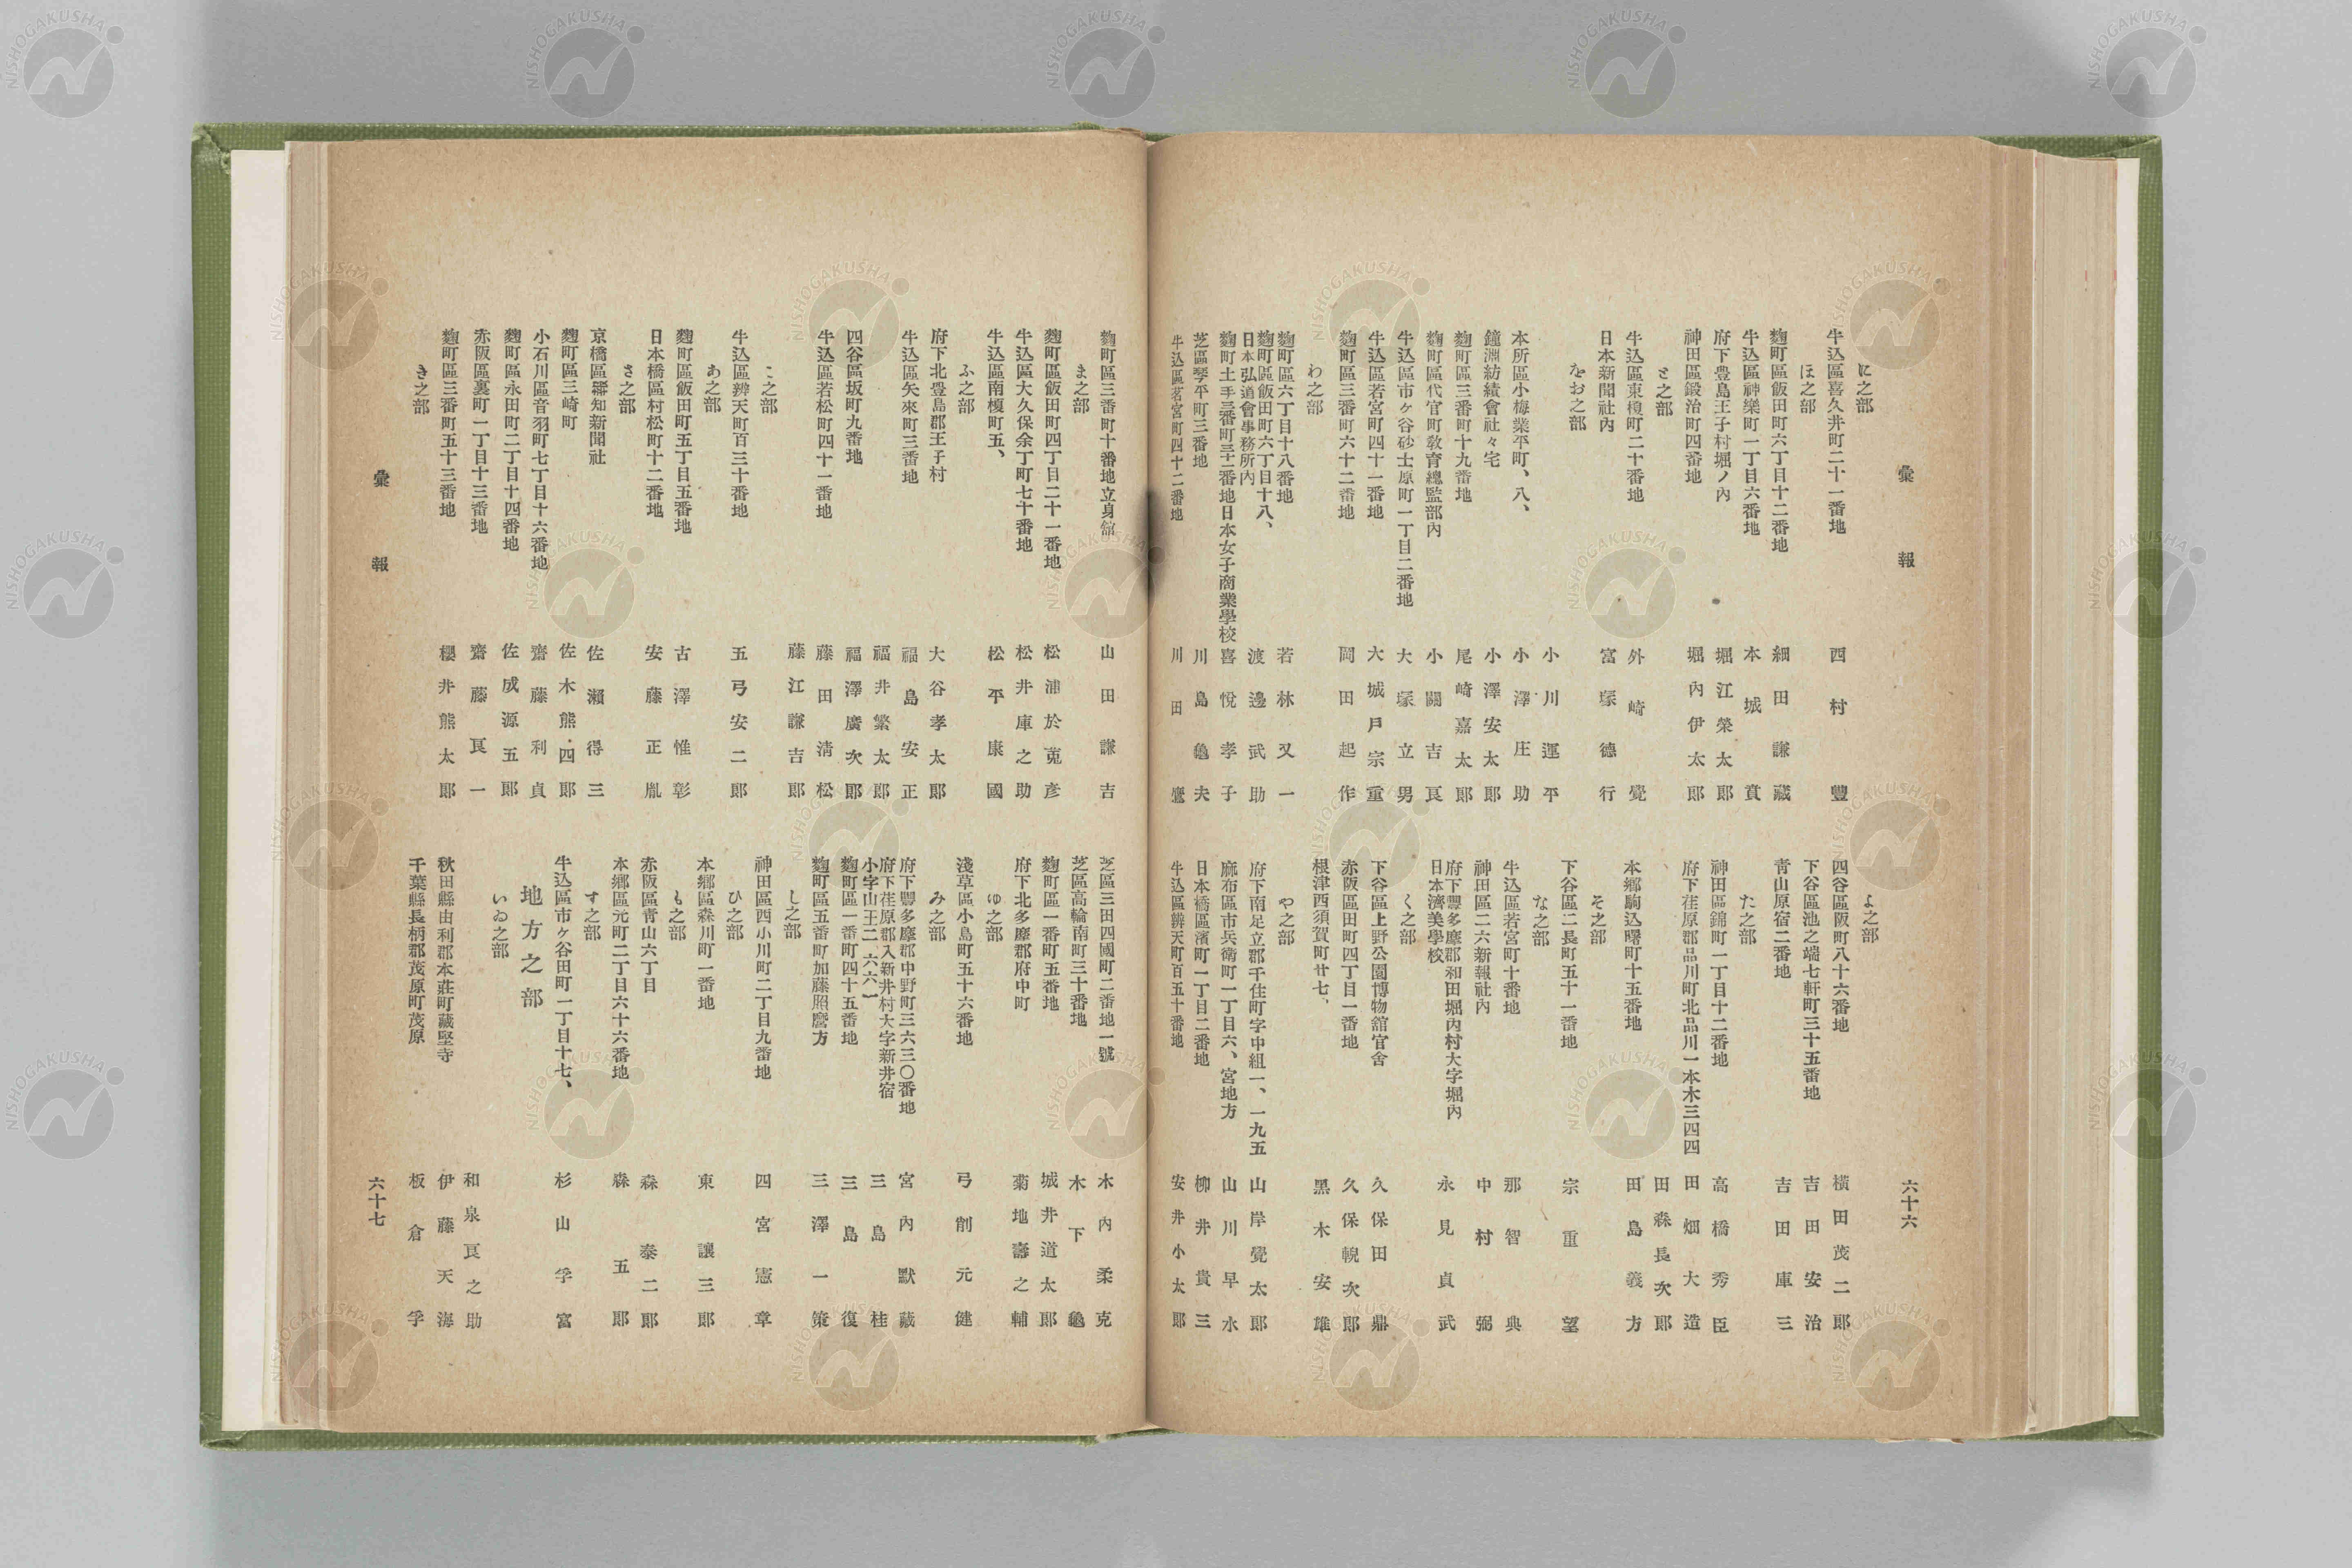 彙報
に之部
牛込區喜久井町二十一番地 西村豐
ほ之部
麴町區飯田町六丁目十二番地 細田謙藏
牛込區神樂町一丁目六番地 本城蕡
府下豊島王子村堀ノ內 堀江榮太郎
神田區鍛治町四番地 堀內伊太郎
と之部
牛込區東榎町二十番地 外崎覺
日本新聞社內 富塚德行
をお之部
小川運平
本所區小梅業平町、八、 小澤庄助
鐘淵紡績會社々宅 小澤安太郎
麴町區三番町十九番地 尾崎嘉太郎
麴町區代官町敎育總監部內 小關吉良
牛込區市ヶ谷砂土原町一丁目二番地 大塚立男
牛込區若宮町四十一番地 大城戶宗重
麴町區三番町六十二番地 岡田起作
わ之部
麴町區六丁目十八番地 若林又一
麴町區飯田町六丁目十八、
日本弘道會事務所內 渡邊武助
麴町土手三番町三十二番地日本女子商業學校 喜悅孝子
芝區琴平町三番地 川島龜夫
牛込區若宮町四十二番地 川田鷹
よ之部
四谷區阪町八十六番地 橫田茂二郎
下谷區池之端七軒町三十五番地 吉田安治
靑山原宿二番地 吉田庫三
た之部
神田區錦町一丁目十二番地 高橋秀臣
府下荏原郡品川町北品川一本木三四四 田畑大造
田森長次郎
本鄕駒込曙町十五番地 田島義方
そ之部
下谷區二長町五十一番地 宗重望
な之部
牛込區若宮町十番地 那智典
神田區二六新報社內 中村弼
府下豐多摩郡和田堀內村大字堀內
日本濟美學校 永見貞武
く之部
下谷區上野公園博物館官舍 久保田鼎
赤阪區田町四丁目一番地 久保輗次郎
根津西須賀町廿七、 黑木安雄
や之部
府下南足立郡千住町字中組一、一九五 山岸覺太郎
麻布區市兵衛町一丁目六、宮地方 山川早水
日本橋區濱町一丁目二番地 柳井貴三
牛込區辨天町百五十番地 安井小太郎
六十六
麴町區三番町十番地立身館 山田謙吉
ま之部
麴町區飯田町四丁目二十一番地 松浦於菟彥
牛込區大久保余丁町七十番地 松井庫之助
牛込區南榎町五、 松平康國
ふ之部
府下北豊島郡王子村 大谷孝太郎
牛込區矢來町三番地 福島安正
福井繁太郎
四谷區坂町九番地 福澤廣次郎
牛込區若松町四十一番地 藤田淸松
藤江謙吉郎
こ之部
牛込區辨天町百三十番地 五弓安二郎
あ之部
麴町區飯田町五丁目五番地 古澤惟彰
日本橋區村松町十二番地 安藤正胤
さ之部
京橋區報知新聞社 佐瀨得三
麴町區三崎町 佐木熊四郎
小石川區音羽町七丁目十六番地 齋藤利貞
麴町區永田町二丁目十四番地 佐成源五郎
赤阪區裏町一丁目十三番地 齋藤良一
麴町區三番町五十三番地 櫻井熊太郎
き之部
彙報
芝區三田四國町二番地一號 木內柔克
芝區高輪南町三十番地 木下龜
麴町區一番町五番地 城井道太郎
府下北多摩郡府中町 菊地壽之輔
ゆ之部
淺草區小島町五十六番地 弓削元健
み之部
府下豐多摩郡中野町三六三〇番地 宮內默藏
府下荏原郡入新井村大字新井宿
小字山王二六六一 三島桂
麴町區一番町四十五番地 三島復
麴町區五番町加藤照麿方 三澤一策
し之部
神田區西小川町二丁目九番地 四宮憲章
ひ之部
本鄕區森川町一番地 東讓三郎
も之部
赤阪區靑山六丁目 森泰二郎
本鄕區元町二丁目六十六番地 森五郎
す之部
牛込區市ヶ谷田町一丁目十七、 杉山孚富
地方之部
いゐ之部
和泉良之助
秋田縣由利郡本莊町藏堅寺 伊藤天海
千葉縣長柄郡茂原町茂原 板倉孚
六十七
NISHOGAKUSHA